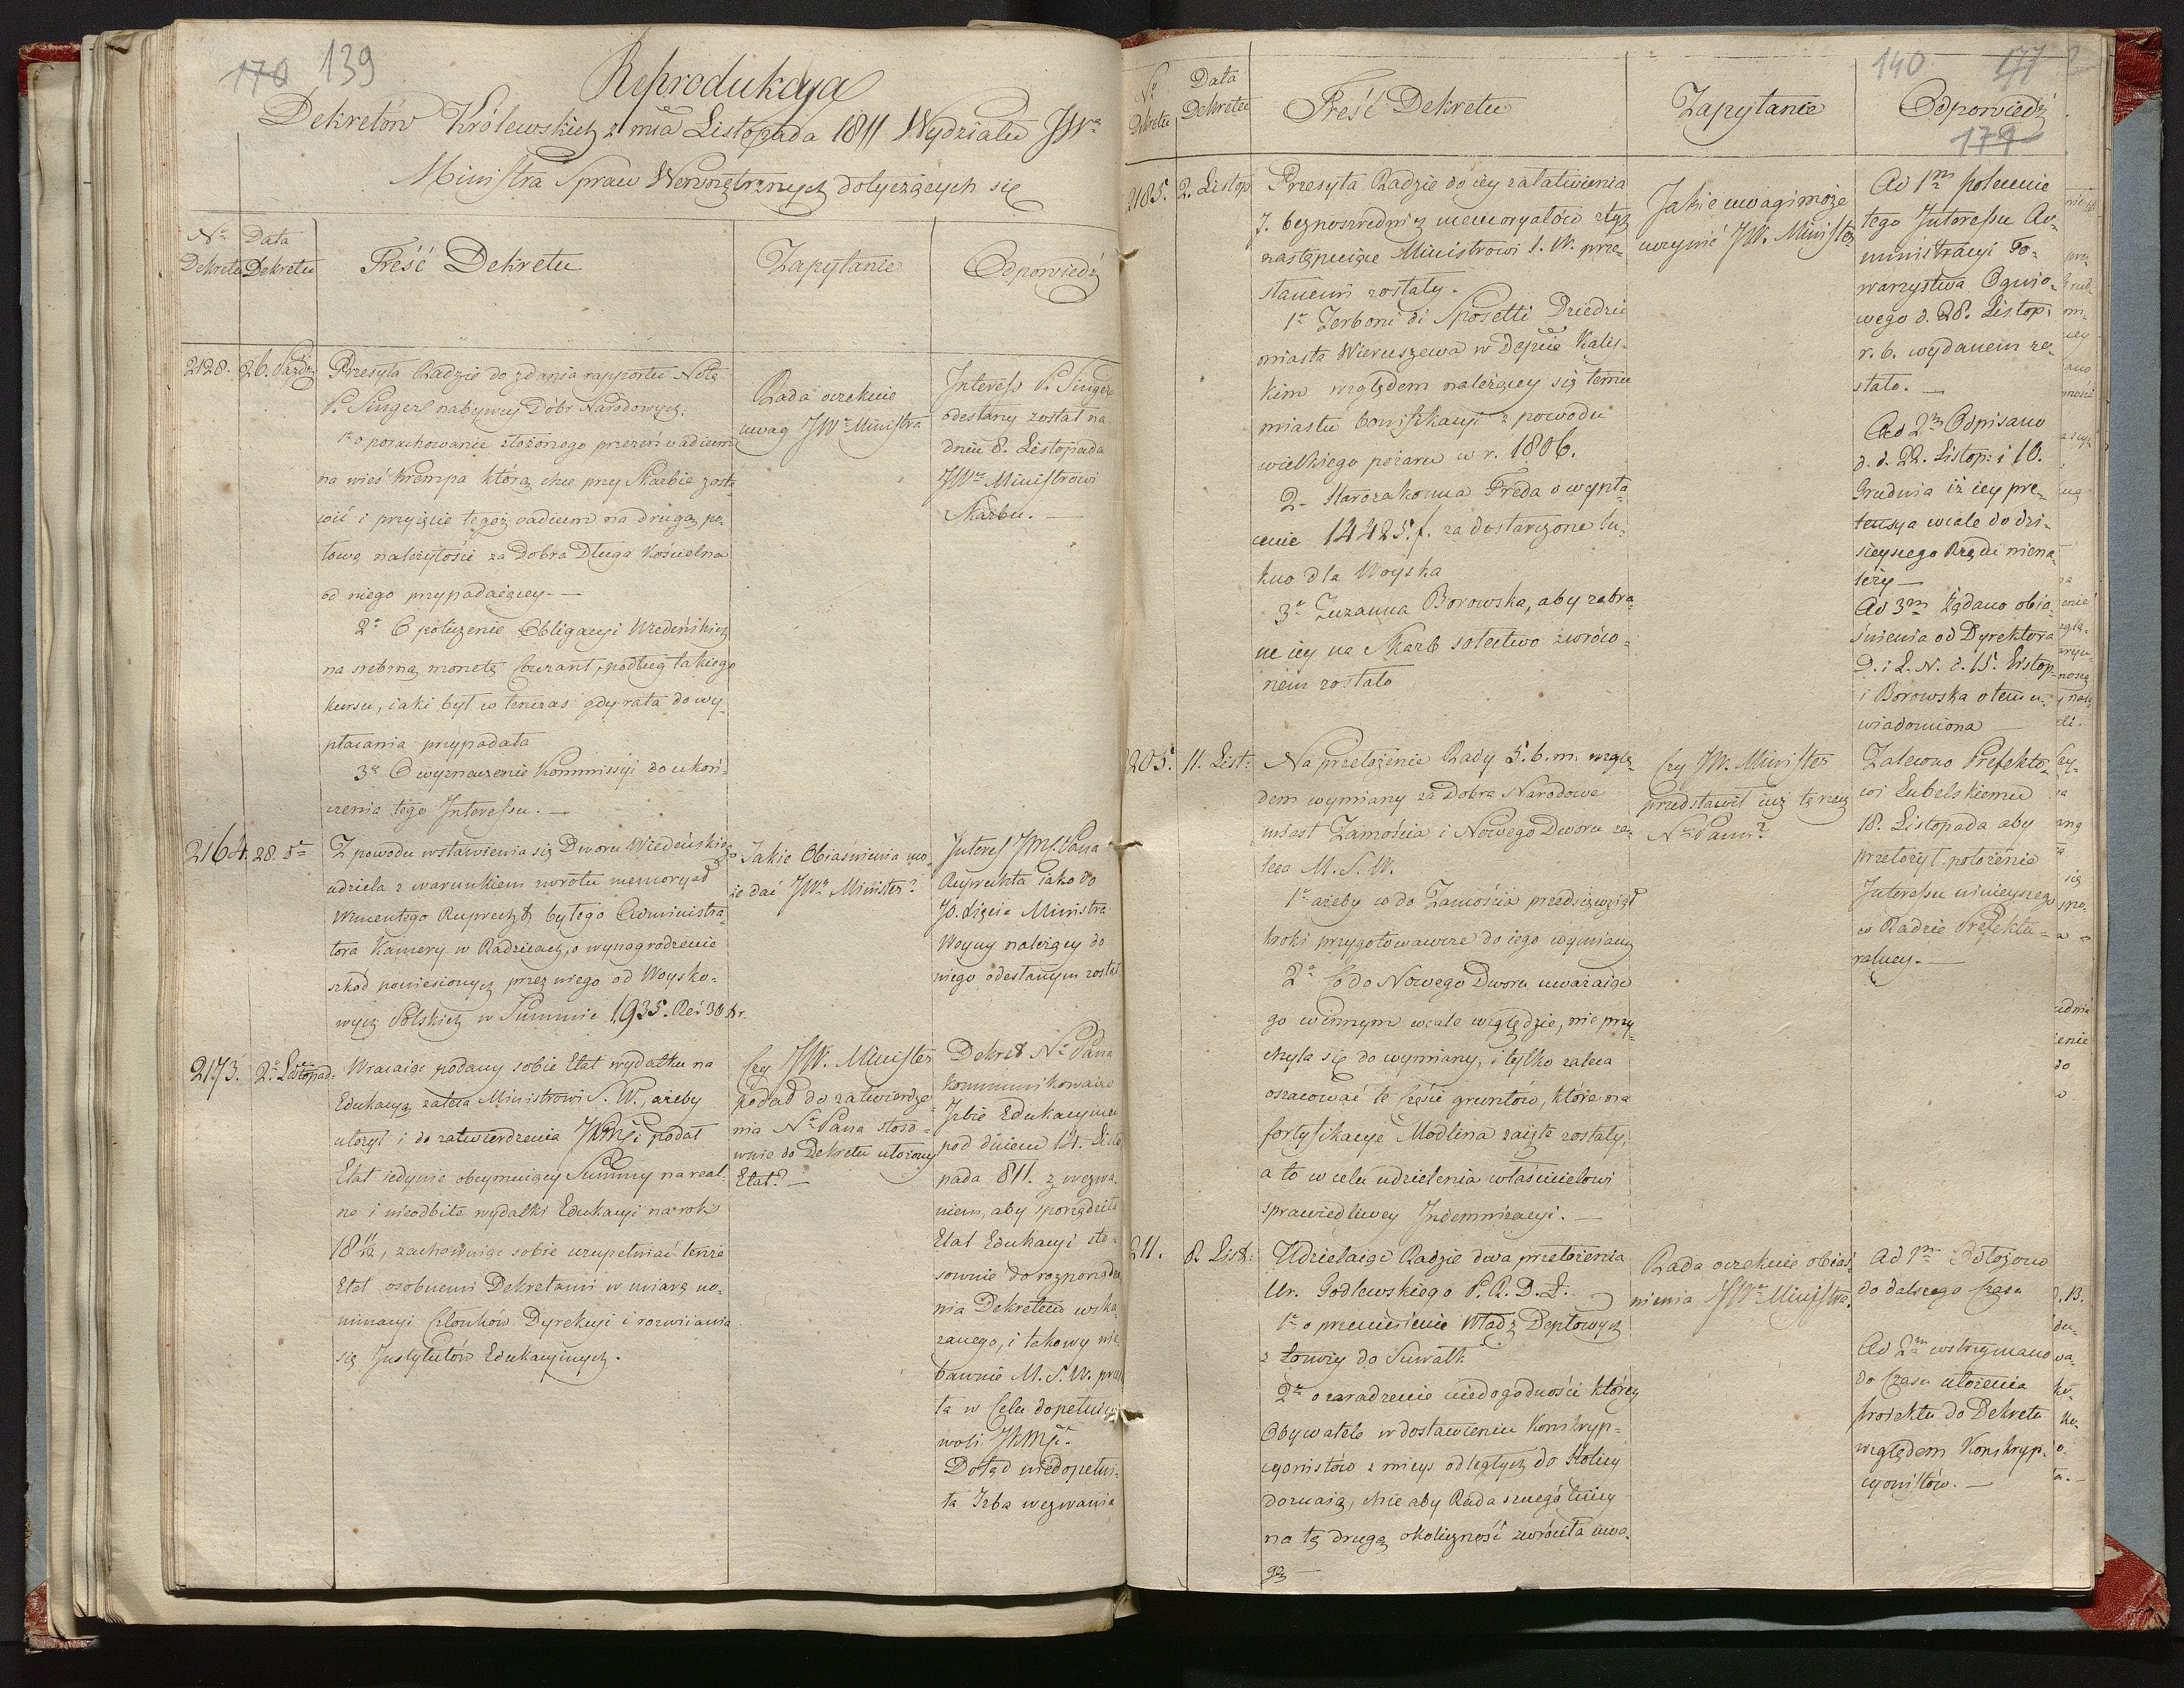 170 139
Reprodukcya
Dekretów Królewskich z mca Listopada 1811 Wydziału JWo
Ministra Spraw Wewnętrznych dotyczących się
No Dekretu
Data Dekretu
Treść Dekretu
Zapytanie
Odpowiedź
2128.
26. Paźdz
Przesyła Radzie do zdania rapportu Notę
P. Singer nabywcy Dóbr Narodowych.
1o o porachowanie złożonego przezeń vadium
na wieś Krempa którą chce przy Skarbie zosta-
wić i przyięcie tegoż vadium na drugą po-
łowę należytości za Dobra Długa Kościelna
od niego przypadaiącey. —
2o O policzenie Obligacyi Wiedeńskich
na srebrną monetę Courant, podług takiego
kursu, iaki był w tenczas gdy rata do wy-
płacania przypadała
3o O wyznaczenie Kommissyi do ukoń-
czenia tego Interessu. —
Rada oczekuie
uwag JWo Ministra
Interess P. Singer
odesłany został na
dniu 8. Listopada
JWmu Ministrowi
Skarbu. —
2164.
28. do
Z powodu wstawienia się Dworu Wiedeńskiego
udziela z warunkiem zwrotu memoryał
Wincentego Ruprecht byłego Administra-
tora Kamery w Radzicach, o wynagrodzenie
szkód poniesionych przez niego od Woysko-
wych Polskich w Summie 1,935. Reń 30 kr.
Jakie Obiaśnienia mo-
że dać JWo Minister?
Interes JmC. Pana
Ruprechta iako do
JO. Xięcia Ministra
Woyny należący do
niego odesłanym został
2173.
2o Listopad.
Wracaiąc podany sobie Etat wydatku na
Edukacyą zaleca Ministrowi S. W., ażeby
ułożył i do zatwierdzenia JKMci podał
Etat iedynie obeymuiący Summy na real-
ne i nieodbite wydatki Edukacyi na rok
1811/12, zachowuiąc sobie uzupełniać tenże
Etat osobnemi Dekretami w miarę no-
minacyi Członków Dyrekcyi i rozwiiania
się Instytutów Edukacyinych.
Czy JW. Minister
podał do zatwierdze-
nia No Pana stoso-
wnie do Dekretu ułożony
Etat? —
Dekret No Pana
kommunikowano
Izbie Edukacyiney
pod dniem 14. Listo
pada 811. z wezwa
niem, aby sporządziła
Etat Edukacyi sto-
sownie do rozporządze
nia Dekretem wska
zanego, i takowy nie
bawnie M. S. W. przes
ła w Celu dopełnienia
woli JKMci.
Dotąd niedopełni-
ła Izba wezwania
140 171
179
No Dekretu
Data Dekretu
Treść Dekretu
Zapytanie
Odpowiedź
2185.
2. Listop
Przesyła Radzie do iey załatwienia
7. bezpośrednich memoryałów z tych
następuiące Ministrowi S. W. prze-
słanemi zostały.
1o Zerboni di Sposetti Dziedzic
miasta Wieruszewa w Depcie Kalis-
kim względem należącey się temu
miastu bonifikacyi z powodu
wielkiego pożaru w r. 1806.
2. Starozakonna Freda o wypła-
cenie 14425. f. za dostarczone su-
kno dla Woyska
3o Zuzanna Borowska, aby zabra-
ne iey na Skarb sołectwo zwróco-
nem zostało
Jakie uwagi może
uczynić JW. Minister
Ad 1m polecenie
tego Interessu Ad-
ministracyi To-
warzystwa Ognio-
wego d. 28. Listop.
r. b. wydanem zo-
stało. —
Ad 2m Odpisano
d. d. 22. Listop. i 10.
Grudnia iż iey pre-
tensya wcale do dzi-
sieyszego Rządu niena-
leży —
Ad 3m Żądano obia-
śnienia od Dyrektora
D. i L. N. d. 15. Listop.
i Borowska o tem u-
wiadomiona —
205.
11. List:
Na przełożenie Rady 5. b. m. wzglę-
dem wymiany za Dobra Narodowe
miast Zamościa i Nowego Dworu za-
leca M. S. W.
1o ażeby co do Zamościa przedsięwziął
kroki przygotowawcze do iego wymiany
2o Co do Nowego Dworu uważaiąc
go w innym wcale względzie, nie przy-
chyla się do wymiany, i tylko zaleca
oszacować te Części gruntów, które na
fortyfikacye Modlina zaięte zostały,
a to w celu udzielenia właścicielowi
sprawiedliwey Indemnizacyi. —
Czy JW. Minister
przedstawił iuż tę rzecz
No Panu?
Zalecono Prefekto-
wi Lubelskiemu
18. Listopada aby
przełożył położenie
Interessu ninieyszego
w Radzie Prefektu-
ralney. —
211.
8. List:
Udzielaiąc Radzie dwa przełożenia
Ur. Godlewskiego P. R. D. Ł.
1o o przeniesienie Władz Deptowych
z Łomży do Suwałk
2o o zaradzenie niedogodności których
Obywatele w dostawieniu Konskryp-
cyonistów z mieysc odległych do stolicy
doznaią, chce aby Rada szczególniey
na tę drugą okoliczność zwróciła uwa-
gę —
Rada oczekuie obiaś-
nienia JWo Ministra.
Ad 1m Odłożono
do dalszego Czasu
Ad 2m wstrzymano
do Czasu ułożenia
proiektu do Dekretu
względem Konskryp-
cyonistów. —